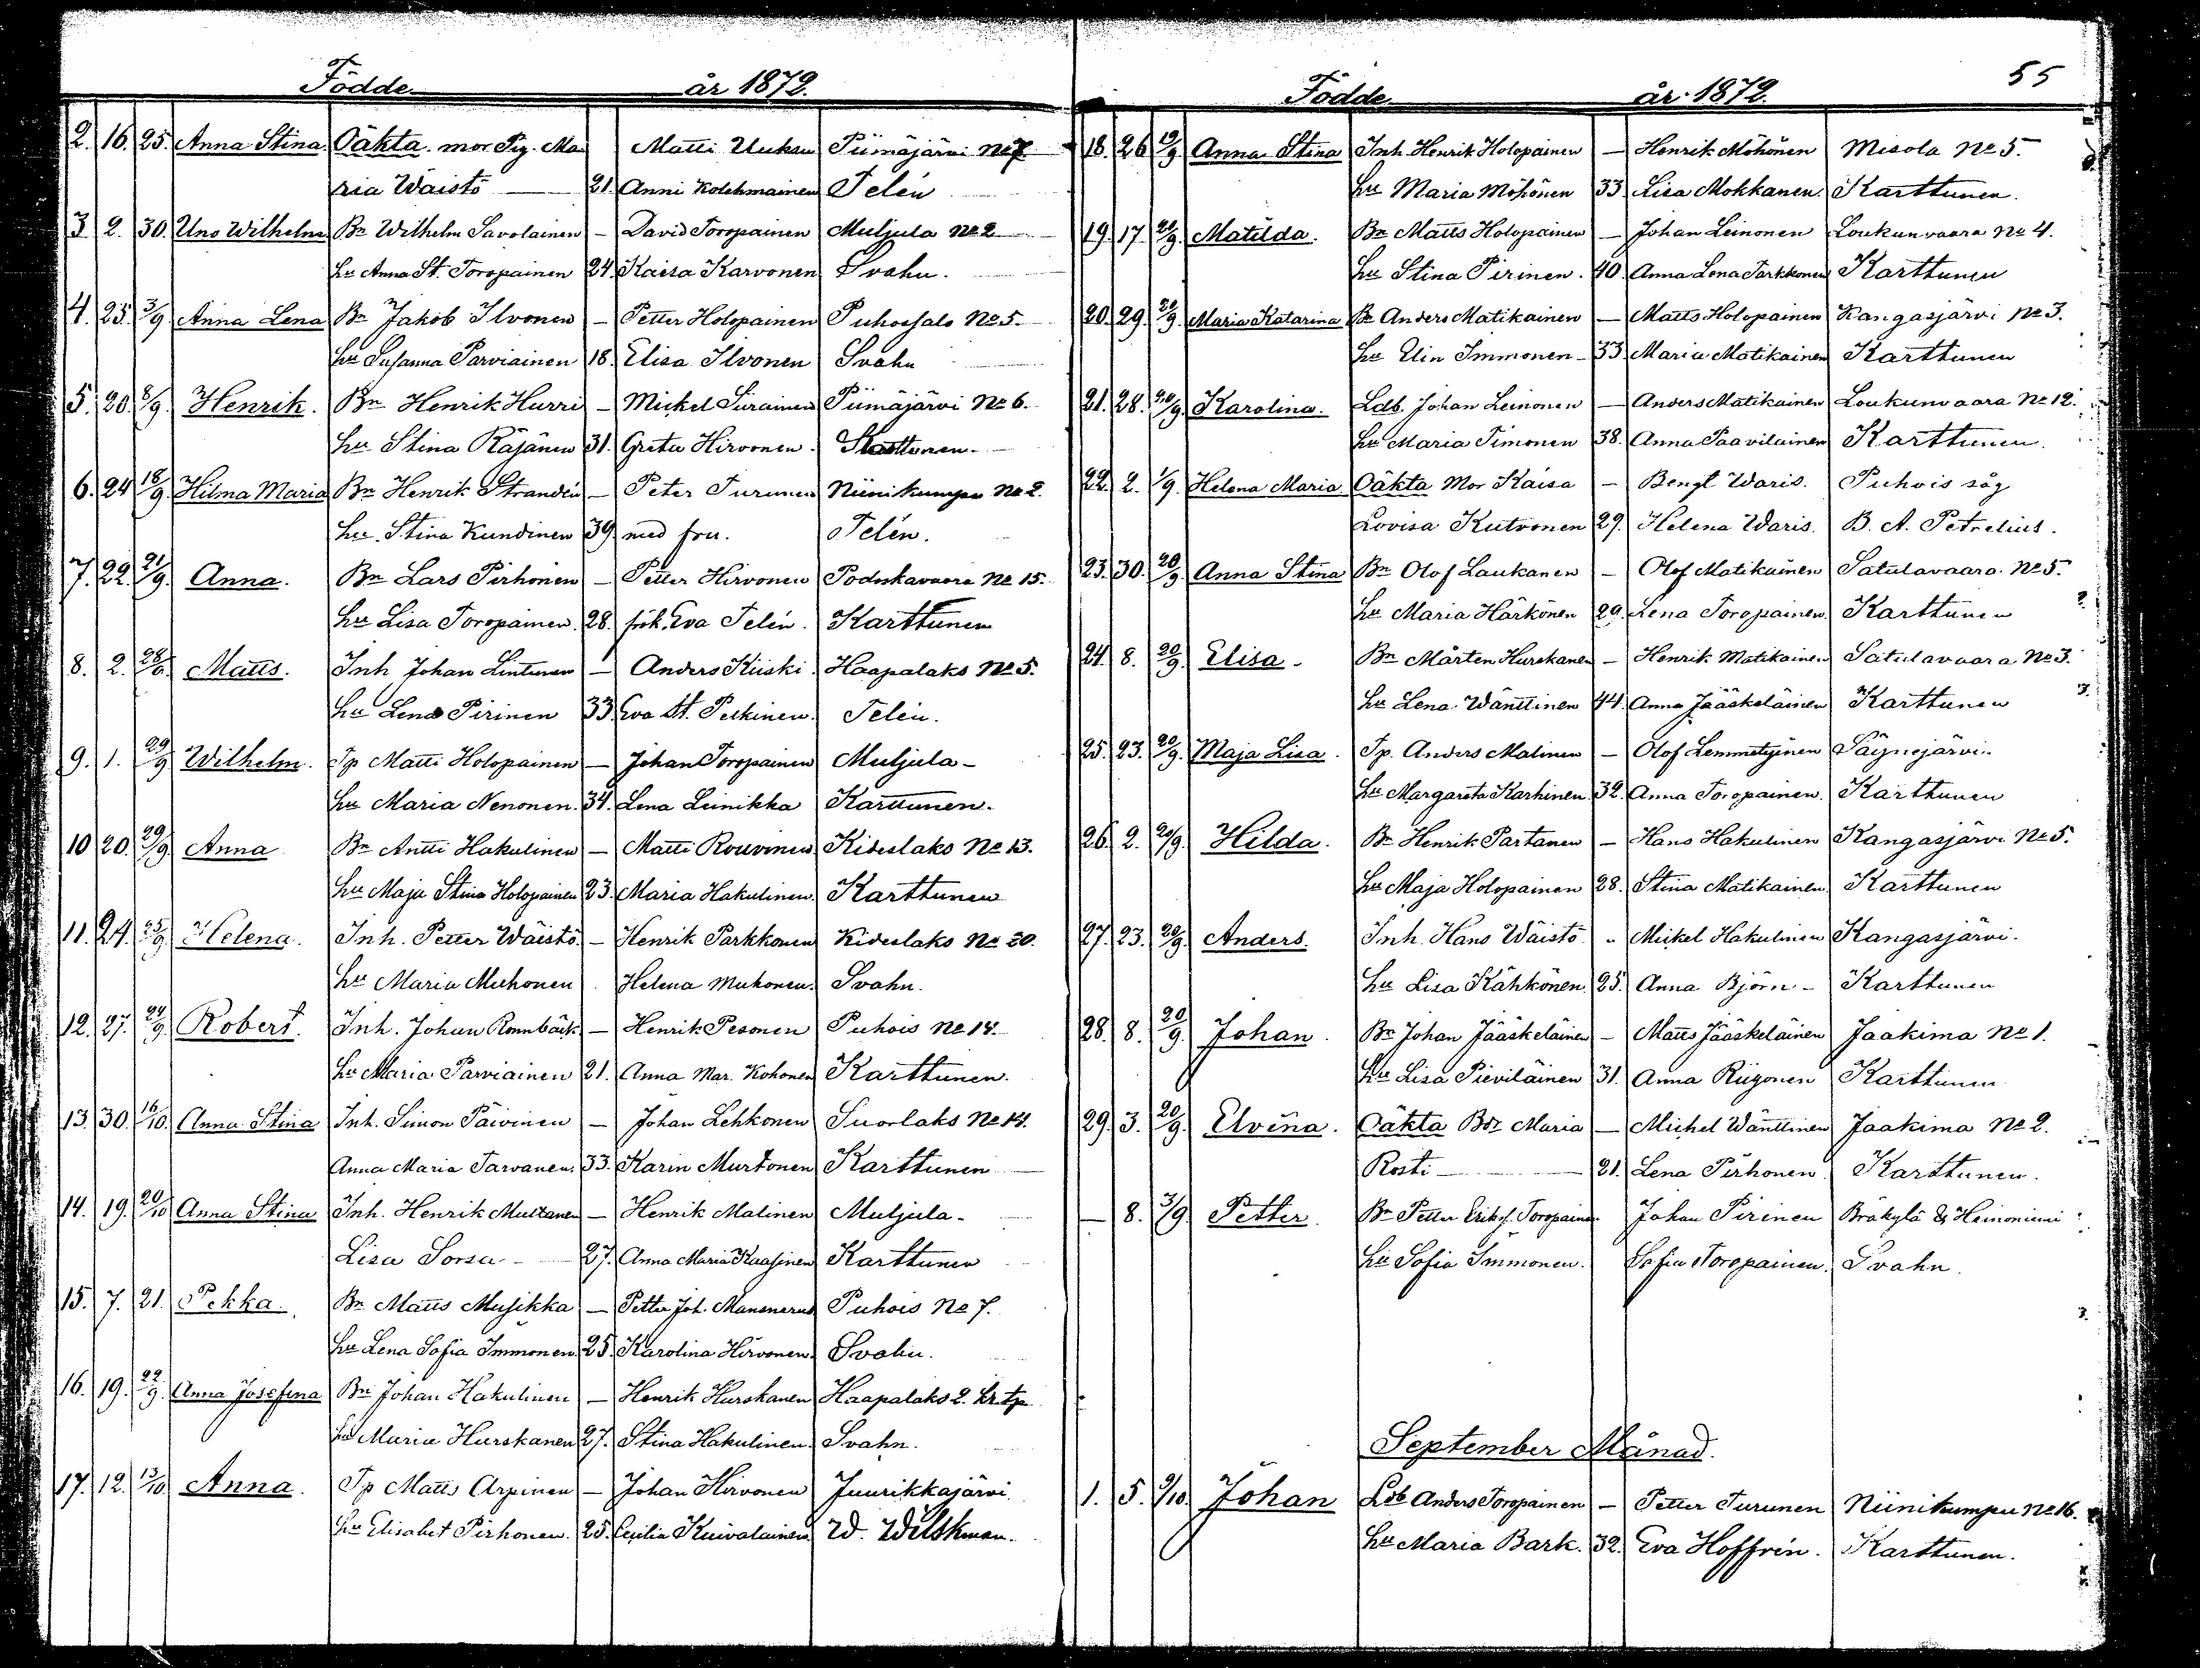 Födde år 1872.
2. 16. 25. Anna Stina Oäkta. mor Pig. Ma Matti Uukan Piimäjärvi No 7
ria Wäistö — 21. Anni Kolehmainen Telén
3. 2. 30. Uno Wilhelm Bn Wilhelm Savolainen — David Toropainen Muljula No 2
hu Anna St. Toropainen 24. Kaisa Karvonen Svahn.
4. 25. 3/9. Anna Lena Bn Jakob Ilvonen — Petter Holopainen Puhossalo No 5.
hu Susanna Parviainen 18. Elisa Ilvonen Svahn
5. 20. 8/9. Henrik. Bn Henrik Hurri — Mickel Siirainen Piimäjärvi No 6.
hu Stina Räjänen 31. Greta Hirvonen. Karttunen.
6. 24 18/9. Hilma Maria Bn Henrik Strandén — Peter Turunen Niinikumpu No 2.
hu. Stina Kundinen 39 med fru. Telén.
7. 22. 21/9. Anna. Bn Lars Pirhonen — Petter Hirvonen Podoskavaara No 15.
hu Lisa Toropainen. 28. frök. Eva Telén. Karttunen
8. 2. 28/9. Matts. Inh Johan Lintunen — Anders Kiiski. Haapalaks No 5.
hu Lena Pirinen 33. Eva St. Pelkinen. Telén.
9. 1. 29/9 Wilhelm. Tp Matti Holopainen — Johan Toropainen Muljula —
hu Maria Nenonen. 34. Lena Leinikka Karttunen.
10 20. 29/9. Anna Bn Antti Hakulinen — Matti Rouvinen Kideslaks No 13.
hu Maja Stina Holopainen 23. Maria Hakulinen. Karttunen
11. 24. 25/9. Helena. Inh. Petter Wäistö. — Henrik Parkkonen Kideslaks No 20.
hu Maria Muhonen Helena Muhonen. Svahn.
12. 27. 24/9. Robert. Inh. Johan Rönnbäck — Henrik Pesonen Puhois No 14.
hu Maria Parviainen 21. Anna Mar. Kohonen Karttunen.
13. 30. 16/10. Anna Stina Inh. Simon Päivinen — Johan Lehkonen Suorlaks No 14.
Anna Maria Tarvanen. 33. Karin Murtonen Karttunen
14. 19. 20/10 Anna Stina Inh. Henrik Multanen — Henrik Malinen Muljula —
Lisa Sorsa — 27. Anna Maria Kaasinen Karttunen
15. 7. 21. Pekka. Bn Matts Musikka — Petter Joh. Manenerus Puhois No 7.
hu Lena Sofia Immonen. 25. Karolina Hirvonen. Svahn.
16. 19. 22/9. Anna Josefina Bn Johan Hakulinen — Henrik Hurskanen Haapalaks 2. kr. tp
hu Maria Hurskanen 27. Stina Hakulinen. Svahn.
17. 12. 13/10. Anna. Tp Matts Arpinen — Johan Hirvonen Juurikkajärvi
hu Elisabet Pirhonen. 25. Cecilia Kuivalainen W. Wilskman.
Födde år 1872. 55
18. 26 19/9 Anna Stina Inh. Henrik Holopainen — Henrik Möhönen Misola No 5.
hu Maria Möhönen 33. Lisa Mokkanen. Karttunen.
19. 17. 20/9. Matilda. Bn Matts Holopainen — Johan Leinonen Loukunvaara No 4.
hu Stina Pirinen. 40. Anna Lena Parkkonen Karttunen
20. 29. 20/9. Maria Katarina Bn Anders Matikainen — Matts Holopainen Kangasjärvi No 3.
hu Elin Immonen — 33 Maria Matikainen Karttunen
21. 28. 20/9. Karolina. Ldb. Johan Leinonen — Anders Matikainen Loukunvaara No 12.
hu Maria Timonen 38. Anna Paavilainen Karttunen.
22. 2. 1/9. Helena Maria. Oäkta Mor Kaisa — Bengt Waris. Puhois såg
Lovisa Kutvonen 29. Helena Waris. B. A. Petrelius.
23. 30. 20/9. Anna Stina Bn Olof Laukanen — Olof Matikainen Satulavaara No 5.
hu Maria Härkönen 29. Lena Toropainen. Karttunen
24. 8. 20/9. Elisa — Bn Mårten Hurskanen — Henrik Matikainen Satulavaara No 3.
hu Lena Wänttinen 44. Anna Jääskeläinen Karttunen
25. 23. 20/9. Maja Lisa. Tp. Anders Malinen — Olof Lemmetyinen Säynejärvi.
hu Margareta Karhinen 32. Anna Toropainen. Karttunen
26. 2. 20/9. Hilda. Bn Henrik Partanen — Hans Hakulinen Kangasjärvi No 5.
hu Maja Holopainen 28. Stina Matikainen. Karttunen
27. 23. 20/9. Anders. Inh. Hans Wäistö. Mickel Hakulinen Kangasjärvi.
hu Lisa Kähkönen. 25. Anna Björn — Karttunen
28. 8. 20/9. Johan. Bn Johan Jääskeläinen — Matts Jääskeläinen Jaakima No 1.
hu Lisa Pieviläinen 31. Anna Riigonen Karttunen
29. 3. 20/9. Elvina. Oäkta Bdr Maria — Michel Wänttinen Jaakima No 2.
Rosti — 21. Lena Pirhonen. Karttunen.
— 8. 3/9. Petter. Bn Petter Eriksf. Toropainen Johan Pirinen Bråkylä & Heinoniemi
hu Sofia Immonen. Sofia Toropainen. Svahn.
September Månad.
1. 5. 9/10. Johan Ldb Anders Toropainen — Petter Turunen Niinikumpu No 16.
hu Maria Bark. 32. Eva Hoffrén. Karttunen.